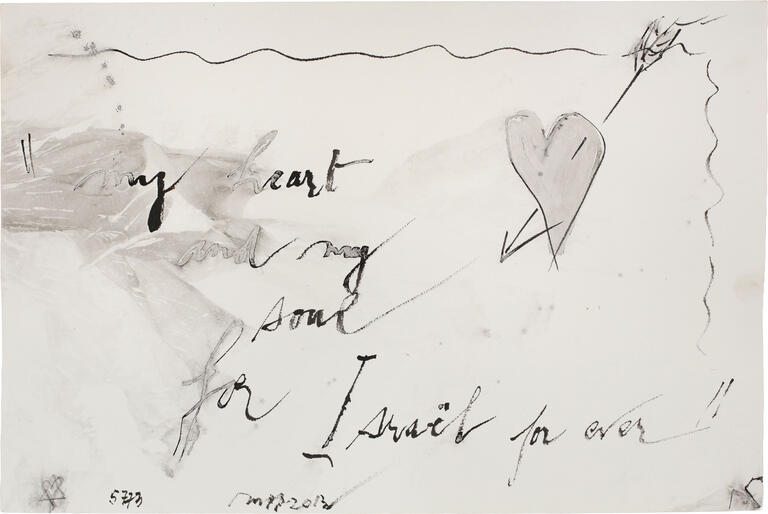 " my heart
and my
soul
for Israël for ever "
5773